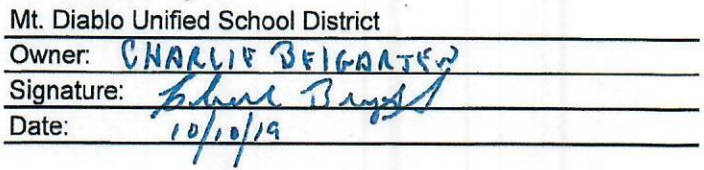 Mt. Diablo Unified School District
Owner: CHARLIE BEIGARTEN
Signature:
Date: 10/10/19